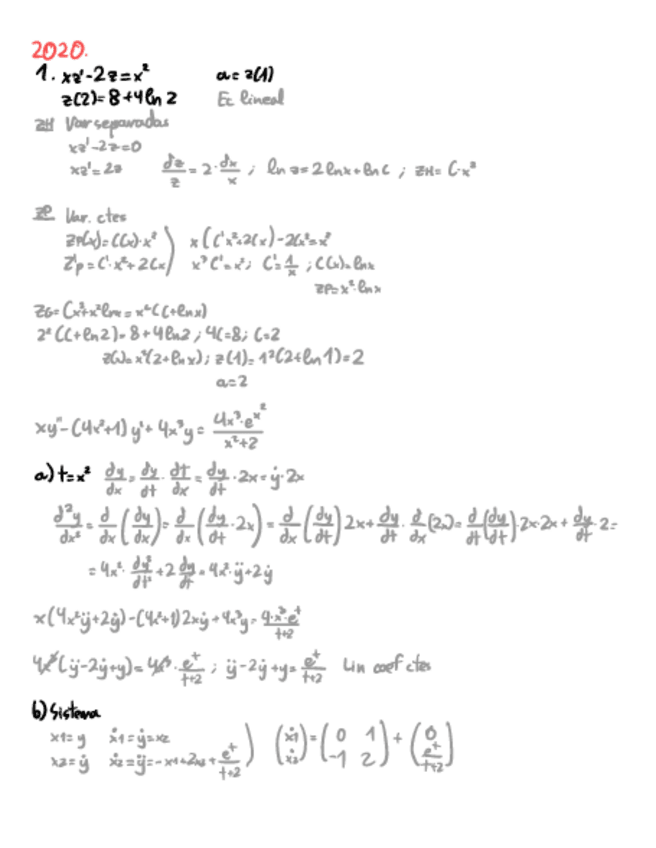 2020.
1. xz'-2z=x² a=z(1)
z(2)=8+4ln2 Ec lineal
ZH Var separadas
xz'-2z=0
xz'=2z dz/z = 2·dx/x ; ln z=2lnx+lnC ; ZH= C·x²
ZP Var. ctes
ZP(x)=C(x)·x² ) x(C'x²+2Cx)-2Cx²=x²
Z'p=C'·x²+2Cx ) x³C'=x²; C'=1/x ; C(x)=lnx
ZP=x²·lnx
ZG=Cx²+x²lnx=x²(C+lnx)
2²(C+ln2)=8+4ln2 ; 4C=8; C=2
z(x)=x²(2+lnx) ; z(1)=1²(2+ln1)=2
a=2
xy''-(4x²+1)y'+4x³y= 4x³·e^x²/x²+2
a) t=x² dy/dx = dy/dt · dt/dx = dy/dt ·2x=ẏ·2x
d²y/dx² = d/dx (dy/dx)= d/dx (dy/dt ·2x) = d/dx (dy/dt)2x+ dy/dt · d/dx (2x)= d/dt (dy/dt)·2x·2x+ dy/dt ·2=
=4x²· dy²/dt² +2 dy/dt =4x²·ÿ+2ẏ
x(4x²ÿ+2ẏ)-(4x²+1)2xẏ+4x³y= 4·x³·e^t/t+2
4x³(ÿ-2ẏ+y)=4x³· e^t/t+2 ; ÿ-2ẏ+y= e^t/t+2 Lin coef ctes
b) Sistema
x1=y ẋ1=ẏ=x2 ) (ẋ1 ẋ2)=(0 1 -1 2)+(0 e^t/t+2)
x2=ẏ ẋ2=ÿ=-x1+2x2+ e^t/t+2 )